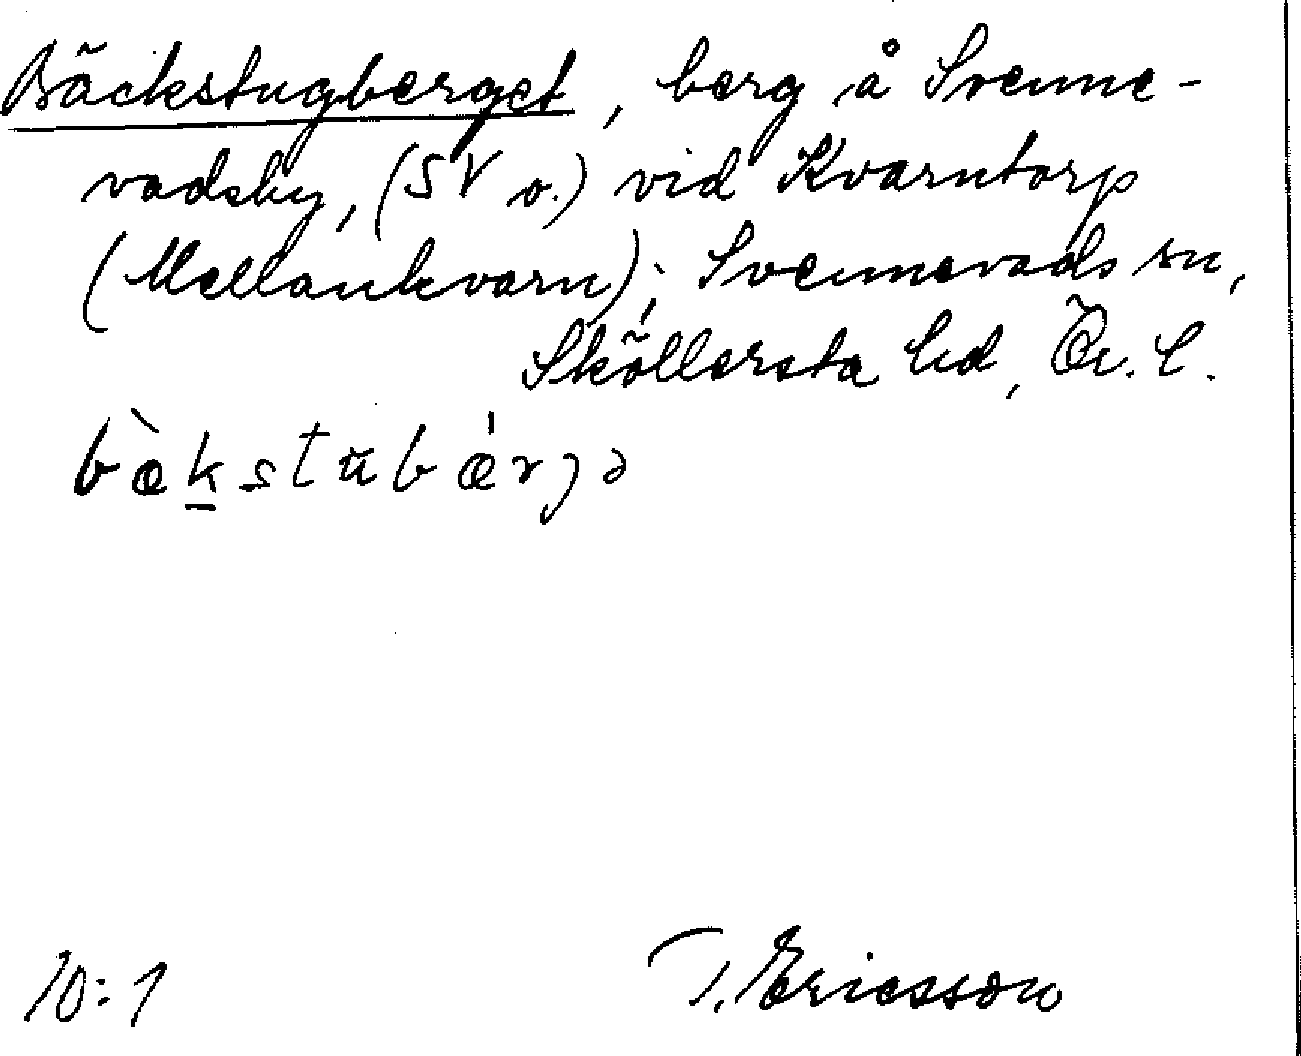 Bäckstugberget, berg å Svenne-
vadsby, (SV o.) vid Kvarntorp
(Mellankvarn); Svennevads sn,
Sköllersta hd, Ör. l.
bæ̀kstŭbǽrjə
10:1 T. Ericsson